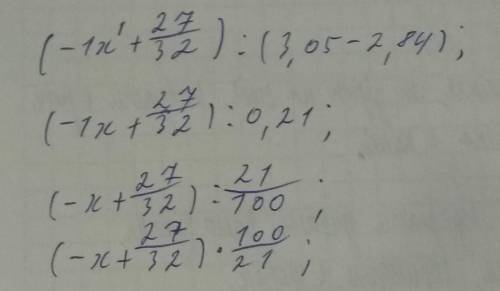 (-1x' + 27/32) : (3,05 - 2,84) ;
(-1x + 27/32) : 0,21 ;
(-x + 27/32) : 21/100 ;
(-x + 27/32) · 100/21 ;